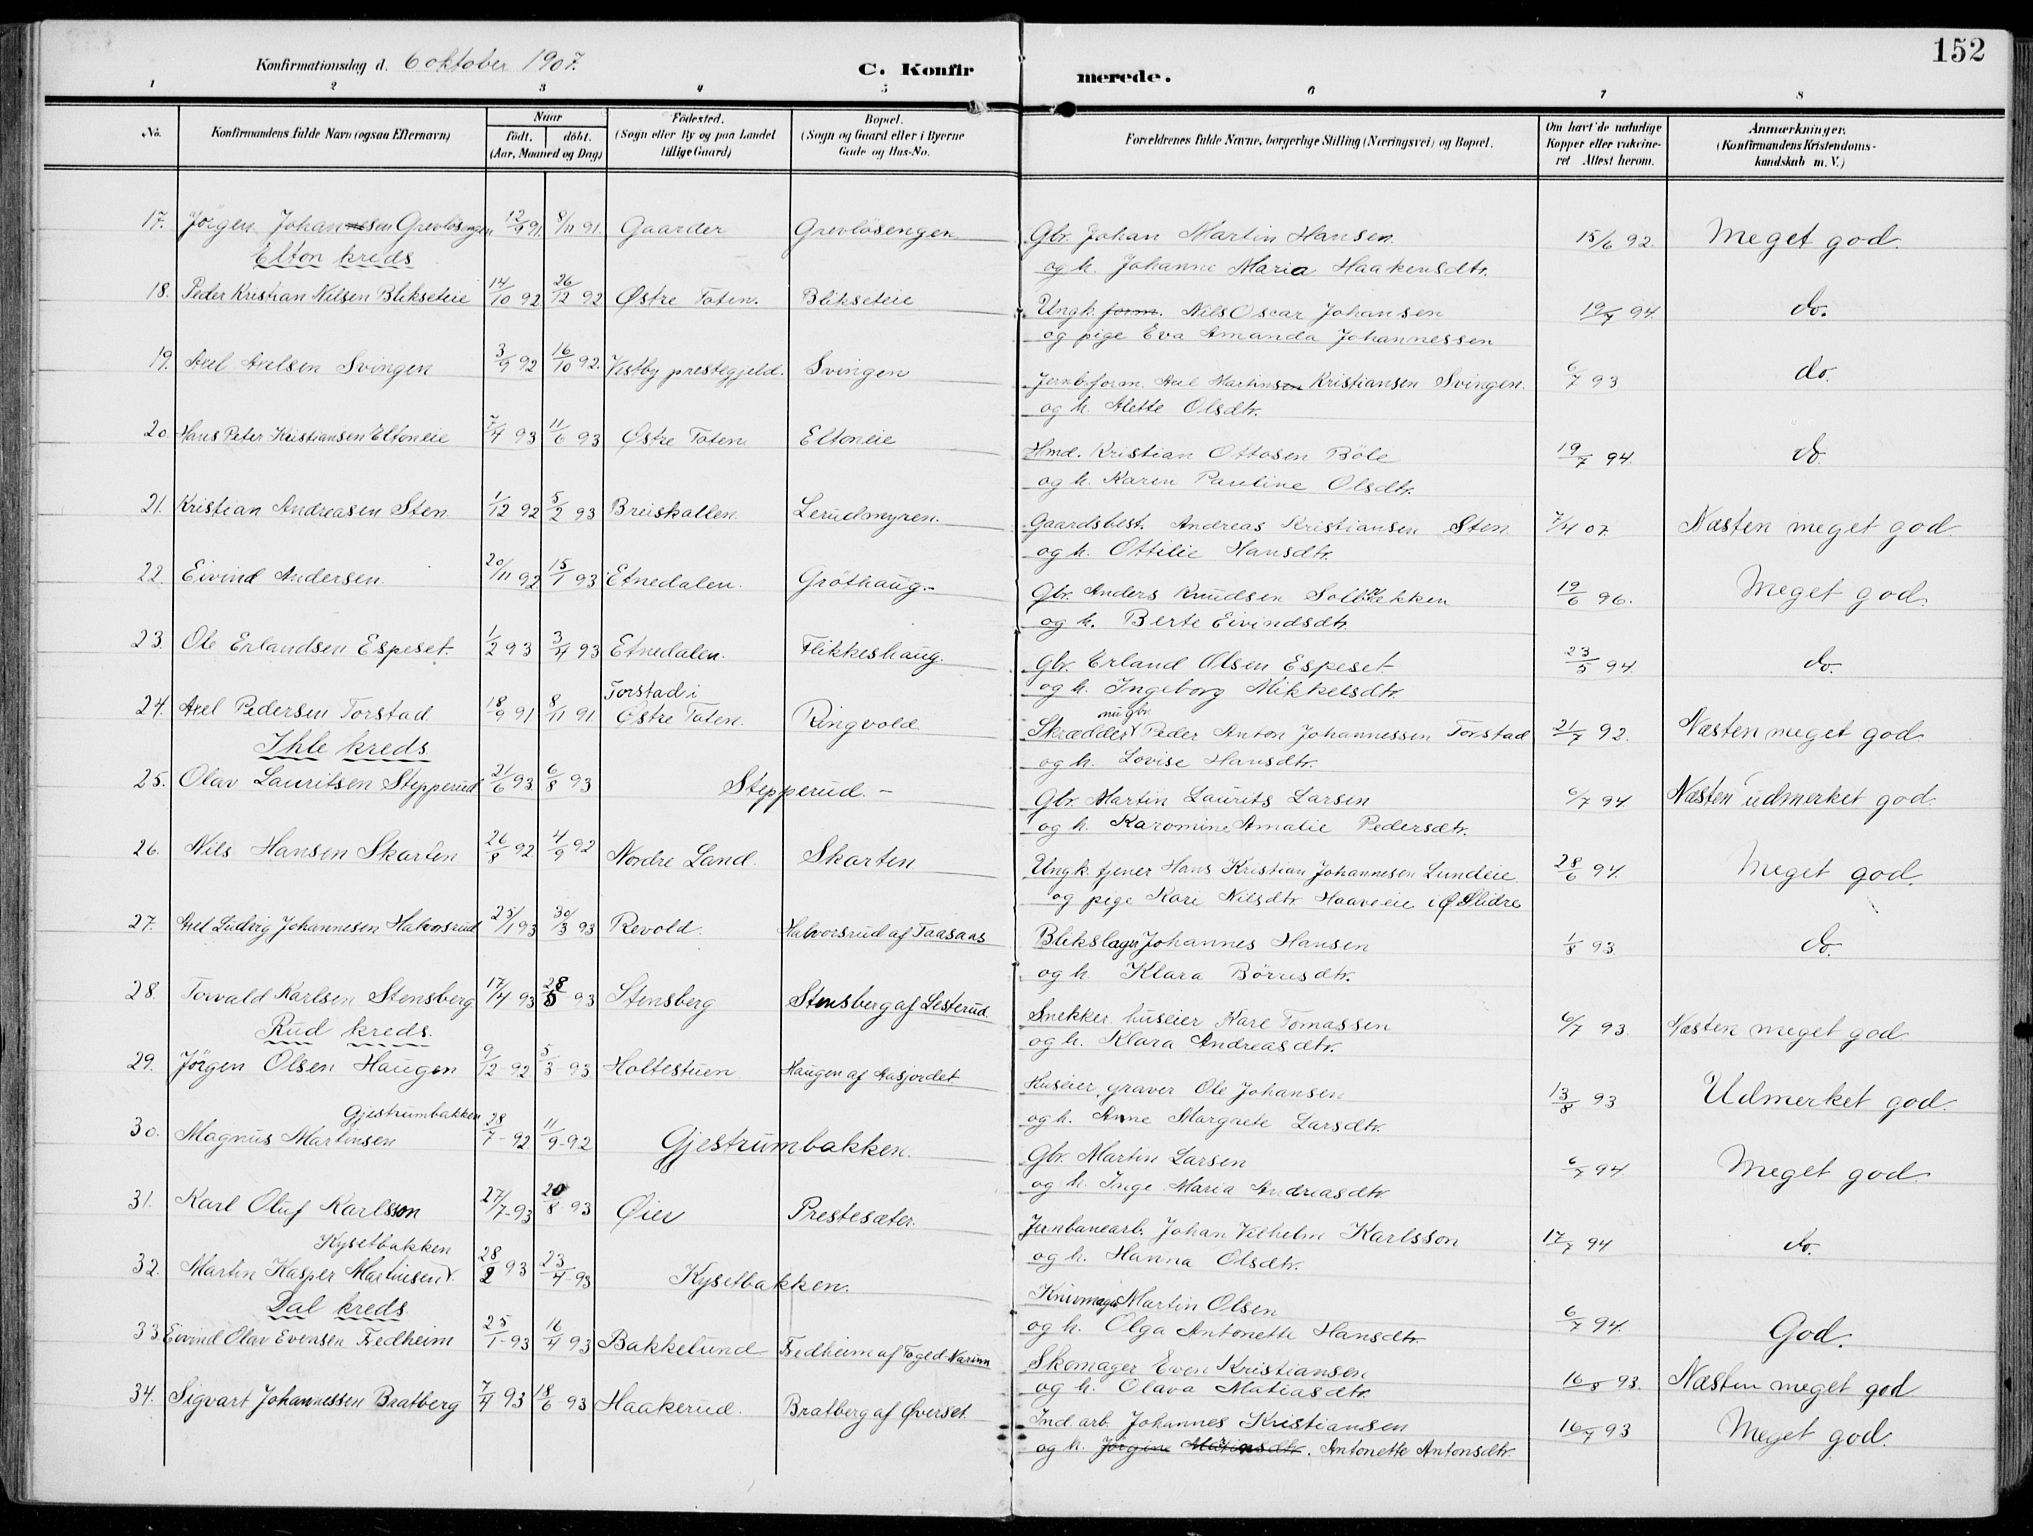 152
Konfirmationsdag d. 6 oktober 1907.
C. Konfirmerede.
1 2 3 4 5 6 7 8
No. Konfirmandens fulde Navn (ogsaa Efternavn) Naar født. døbt. (Aar, Maaned og Dag) Fødested. (Sogn eller By og paa Landet tillige Gaard) Bopæl. (Sogn og Gaard eller i Byerne Gade og Hus-No. Forældrenes fulde Navne, borgerlige Stilling (Næringsvei) og Bopæl. Om havt de naturlige Kopper eller vakcineret Attest herom. Anmærkninger. (Konfirmandens Kristendomskundskab m. V.)
17. Jørgen Johansen Grevløsengen 12/9 91. 8/11 91. Gaarder Grevløsengen Gbr. Johan Martin Hansen 15/6 92. Meget god.
og h. Johanne Maria Haakensdtr.
Elton kreds
18. Peder Kristian Nilsen Blikseteie 14/10 92 26/12 92 Østre Toten. Blikseteie Ungk. form. Nils Oscar Johansen 19/7 94. do.
og pige Eva Amanda Johannessen
19. Axel Axelsen Svingen 3/9 92 16/10 92. Vestby prestegjeld. Svingen Jernb.form. Axel Martinsen Kristiansen Svingen. 6/7 93 do.
og h. Alette Olsdtr.
20. Hans Peter Kristiansen Eltoneie 7/4 93 11/6 93 Østre Toten Eltoneie Hmd. Kristian Ottosen Böle 19/7 94. do.
og h. Karen Pauline Olsdtr.
21. Kristian Andreasen Sten 1/12 92 5/2 93 Breiskallen. Lerudmyren. Gaardsbest. Andreas Kristiansen Sten 7/4 07. Næsten meget god.
og h. Ottilie Hansdtr.
22. Eivind Andersen. 20/11 92 15/1 93 Etnedalen. Gröthaug. Gbr. Anders Knudsen Solbrekken 19/6 96. Meget god.
og h. Berte Eivindsdtr.
23. Ole Erlandsen Espeset 1/2 93 3/4 93 Etnedalen. Flikkeshaug. Gbr. Erland Olsen Espeset 23/5 94. do.
og h. Ingeborg Mikkelsdtr.
24. Axel Pedersen Torstad 18/9 91 8/11 91. Torstad i Østre Toten. Ringvold Skrædder nu gbr. Peder Anton Johannessen Torstad 21/7 92. Næsten meget god
og h. Lovise Hansdtr.
Ihle kreds
25. Olav Lauritsen Stepperud 21/6 93 6/8 93 Stepperud. Gbr. Martin Laurits Larsen 6/7 94 Næsten udmerket god.
og h. Karomine Amalie Pedersdtr.
26. Nils Hansen Skarten 26/8 92 4/9 92 Nordre Land. Skarten. Ungk. tjener Hans Kristian Johannesen Lundeie 28/6 94. Meget god.
og pige Kari Nilsdtr. Haaveeie i Ø Slidre
27. Axel Ludvig Johannesen Halvorsrud 25/1 93 30/3 93 Revold. Halvorsrud af Taasaas Blikslager Johannes Hansen 1/8 93. do.
og h. Klara Börresdtr.
28. Torvald Karlsen Stensberg 17/4 93 28/5 93 Stensberg Stensberg af Lesterud. Snekker, huseier Karl Tomassen 6/7 93. Næsten meget god
og h. Klara Andreasdtr.
Rud kreds.
29. Jörgen Olsen Haugen 9/12-92 5/3-93 Holtestuen Haugen af Aasjordet Huseier, graver Ole Johansen 13/8 93 Udmerket god.
og h. Anne Margrete Larsdtr.
30. Magnus Martinsen Gjestrumbakken 28/7-92 11/9-92 Gjestrumbakken. Gbr. Martin Larsen 6/7 94 Meget god
og h. Inge Maria Andreasdtr
31. Karl Oluf Karlsson 27/7-93 20/8-93 Øier Prestesæter. Jernbanearb. Johan Vilhelm Karlsson 17/7 94 do.
og h. Hanna Olsdtr.
32. Martin Kasper Martinsen Kysetbakken 28/2 93 23/4-93 Kysetbakken. Knivmager Martin Olsen 6/7 94. God.
og h. Olga Antonette Hansdtr.
Dal kreds.
33. Eivind Olav Evensen Fredheim 25/1-93 16/4 93 Bakkelund Fredheim af Toged-Narum Skomager Even Kristiansen 16/8 93. Næsten meget god
og h. Olava Matiasdtr.
34. Sigvart Johannessen Bratberg 7/4 93 18/6 93 Haakerud. Bratberg af Øverset. Ind. arb. Johannes Kristiansen 16/7 93 Meget god.
og h. Jörgine Matinsdtr. Antonette Antonsdtr.